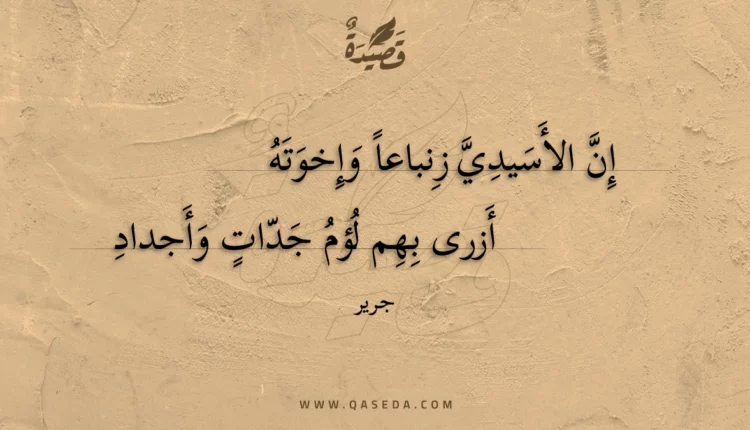 قَصِيدَةٌ
إِنَّ الأَسَيدِيَّ زِنباعاً وَإِخوَتَهُ
أَزرى بِهِم لُؤمُ جَدّاتٍ وَأَجدادِ
جرير
WWW.QASEDA.COM